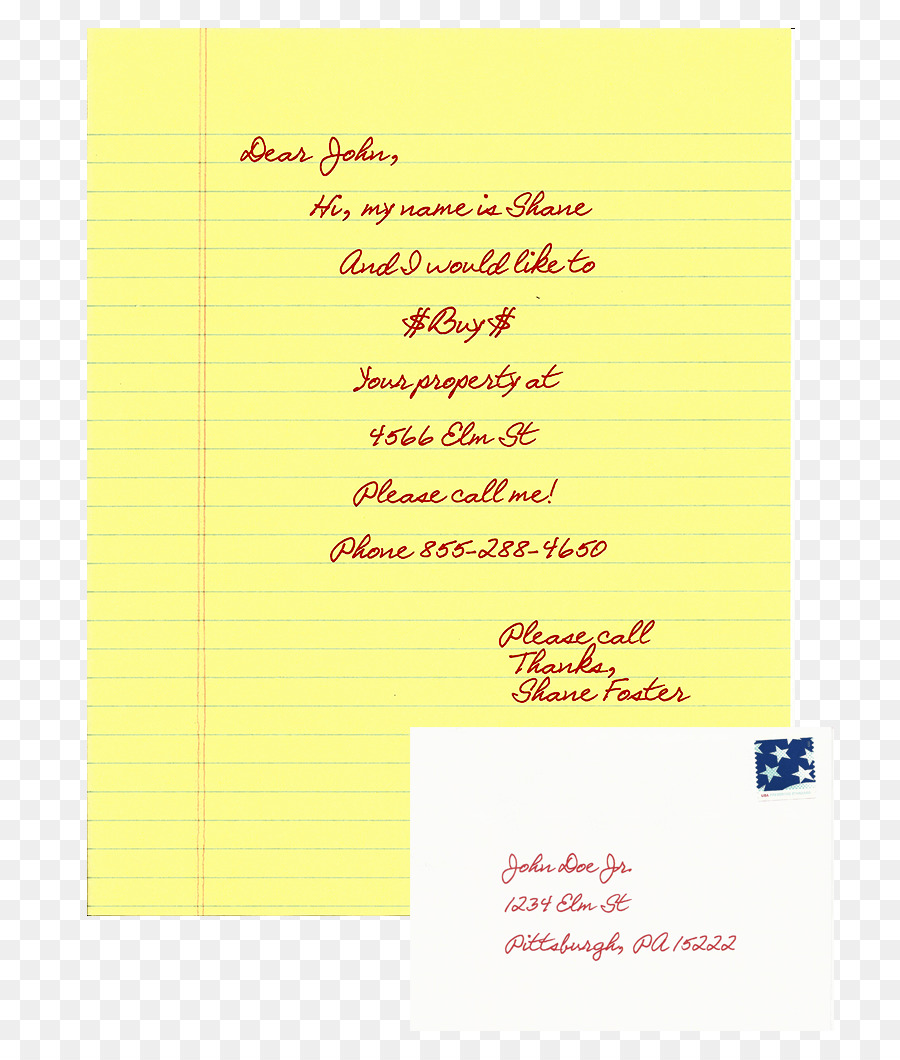 Dear John,
Hi, my name is Shane
And I would like to
$Buy$
Your property at
4566 Elm St
Please call me!
Phone 855-288-4650
Please call
Thanks,
Shane Foster
USA
John Doe Jr.
1234 Elm St
Pittsburgh, PA 15222